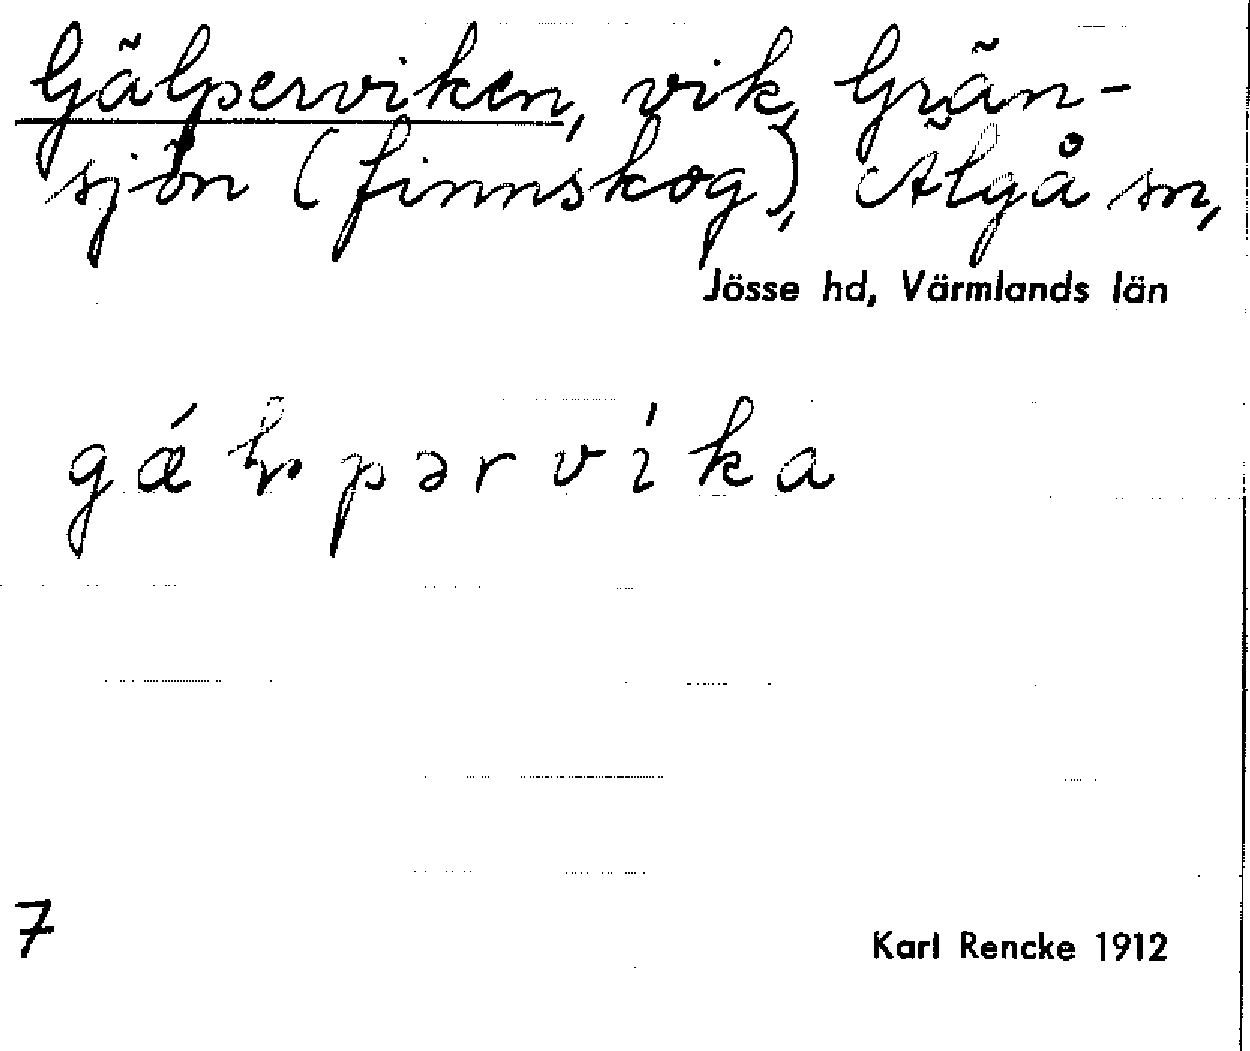 Gälperviken, vik, Grän-
sjön (finnskog), Älgå sn,
Jösse hd, Värmlands län
7
Karl Rencke 1912